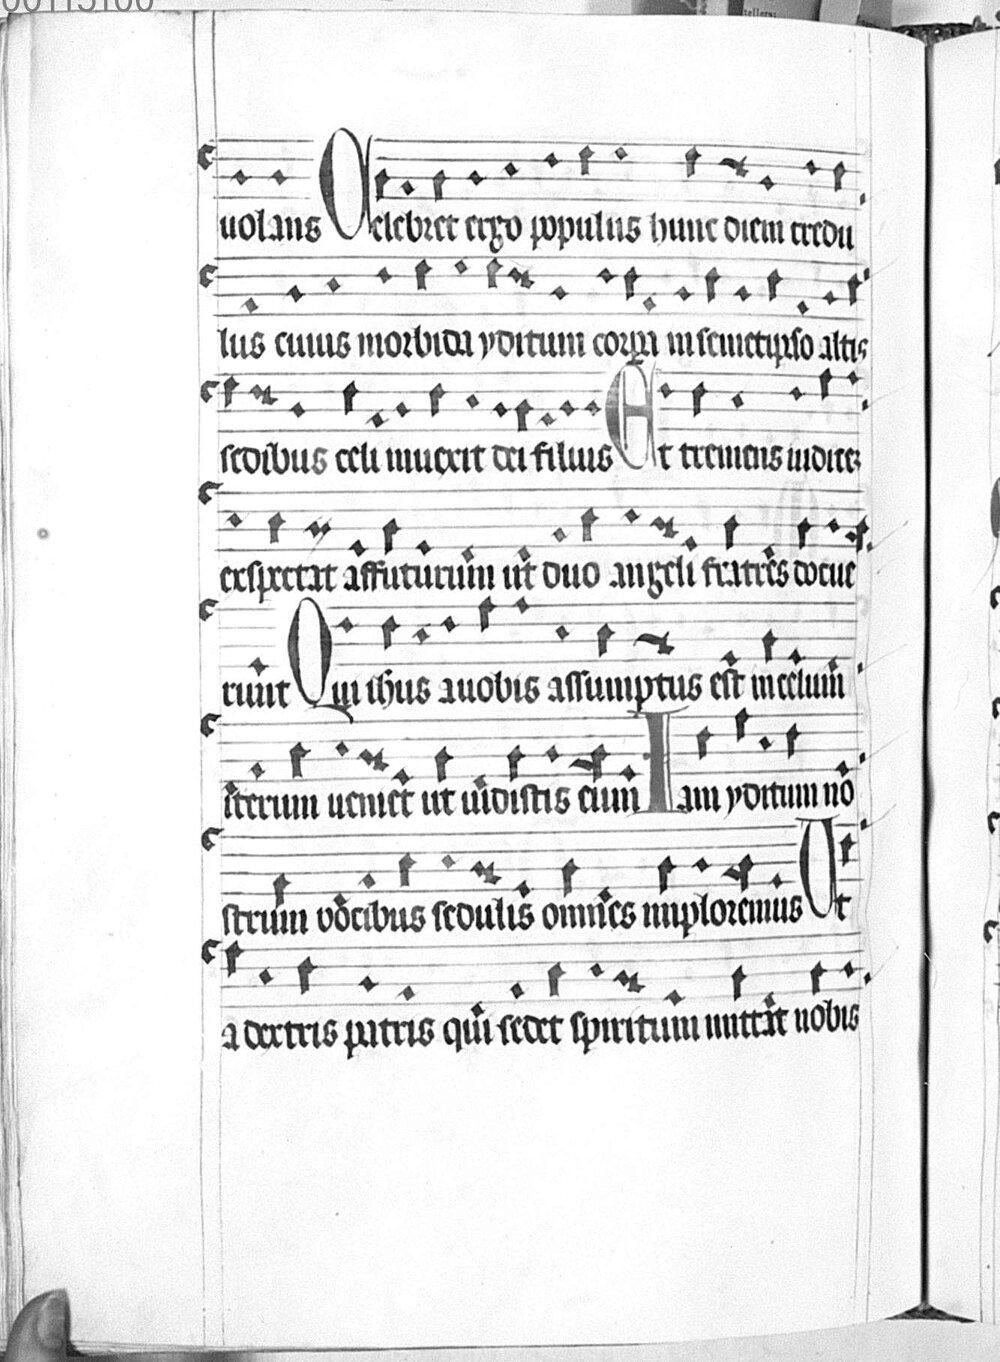 00113100
uolans Celebret ergo populus hunc diem credu
lus cuius morbida yditum corpora in semetipso altis
sedibus celi inuexit dei filius Et tremens iudicem
exspectat affuturum ut duo angeli fratres docue
runt Qui ihus auobis assumptus est in celum
iterum ueniet ut uidistis eum Iam yditum no
strum vocibus sedulis omnes imploremus Ut
a dextris patris qui sedet spiritum mittat nobis